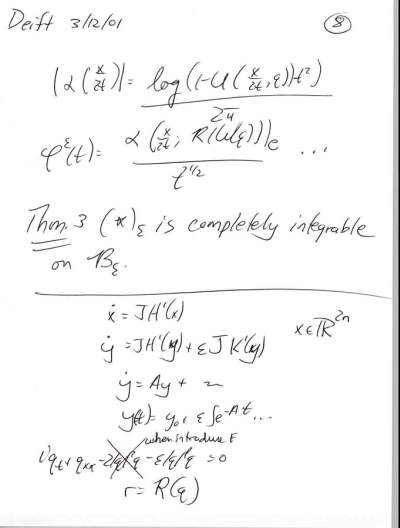 Deift 3/12/01
8
|α(x/2t)| = log(1-|r(x/2t,ε)|²)
2π
φ^ε(t) = α(x/2t; R(U(q)))e ...
t^1/2
Thm. 3 (*)_ε is completely integrable
on B_ε.
ẋ = JH'(x)
x∈ℝ^2n
ẏ = JH'(y) + εJK'(y)
ẏ = Ay +
y(t) = y_0, ε∫e^-At...
when introduce ε
iq_t + q_xx - 2|q|²q - ε|q|^l q = 0
r = R(q)